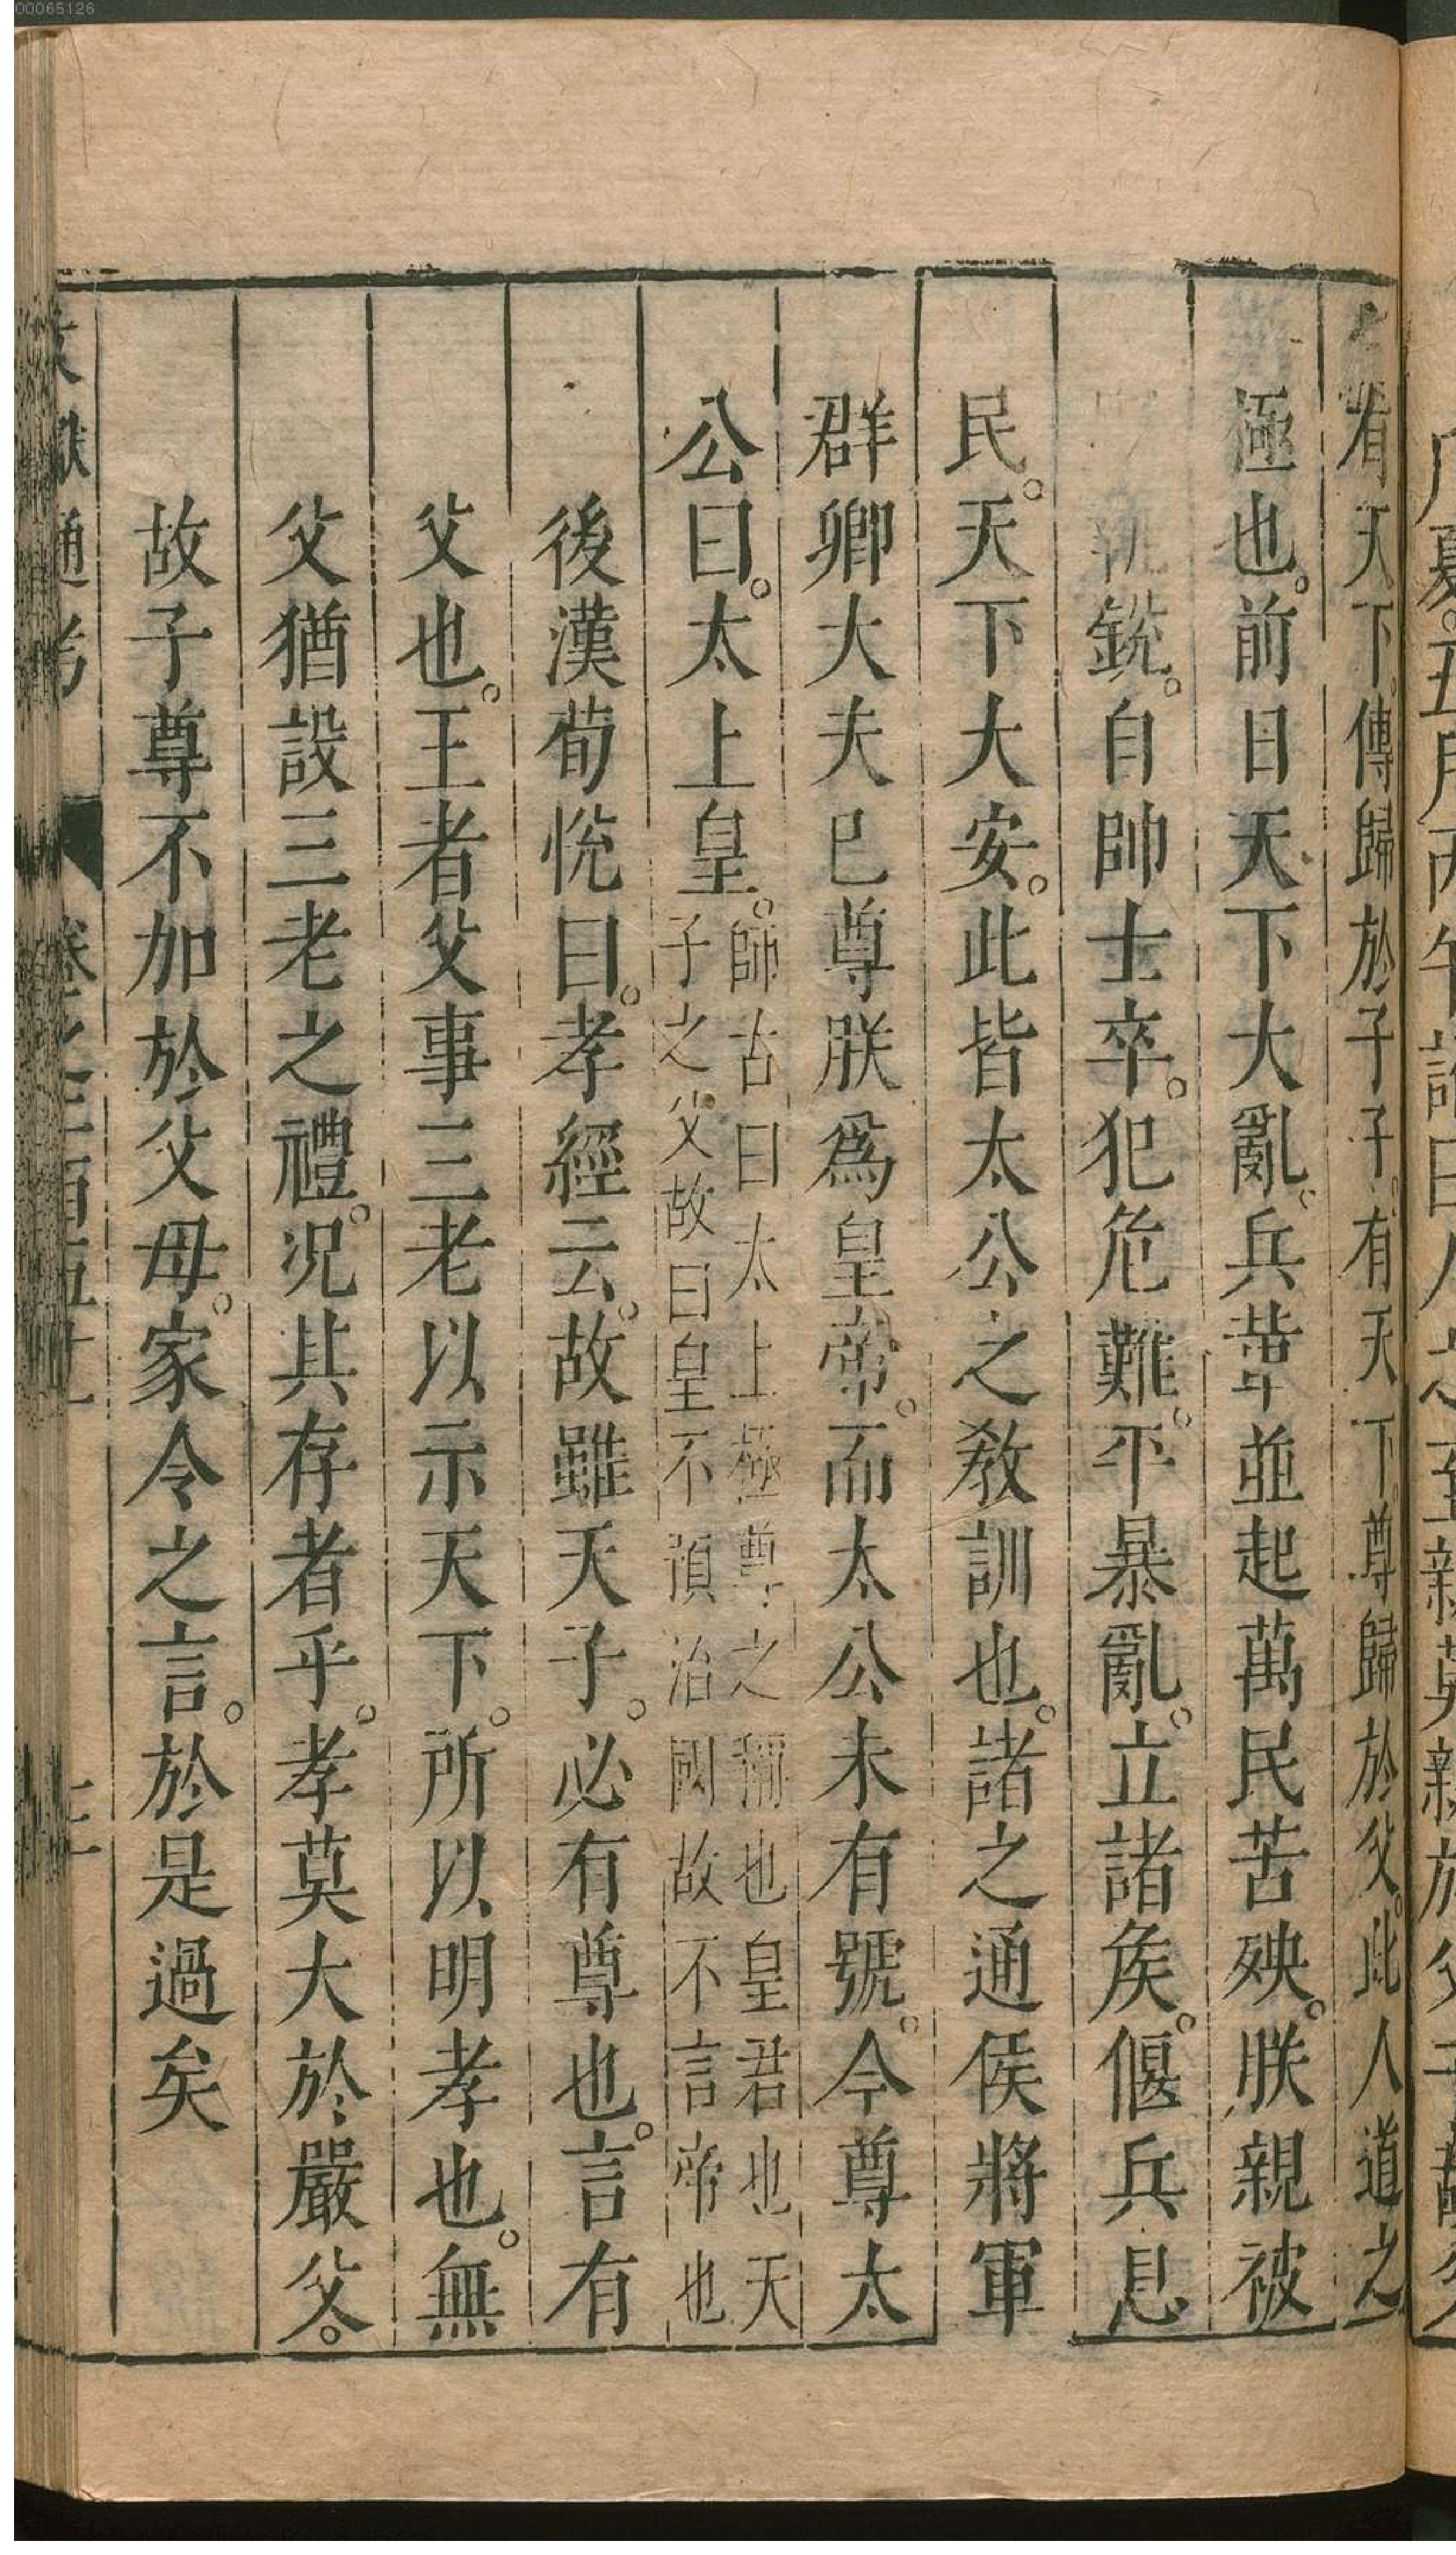 有天下。傳歸於子。子有天下。尊歸於父。此人道之
極也。前日天下大亂。兵革並起萬民苦殃。朕親被
執銳。自帥士卒。犯危難。平暴亂。立諸侯。偃兵息
民。天下大安。此皆太公之敎訓也。諸之通侯將軍
群卿大夫巳尊朕爲皇帝。而太公未有號。今尊太
公曰。太上皇。
師古曰太上極尊之稱也皇君也天
子之父故曰皇不預治國故不言帝也
後漢荀悅曰。孝經云。故雖天子。必有尊也。言有
父也。王者父事三老以示天下。所以明孝也。無
父猶設三老之禮。况其存者乎。孝莫大於嚴父。
故子尊不加於父母。家令之言。於是過矣
00065126